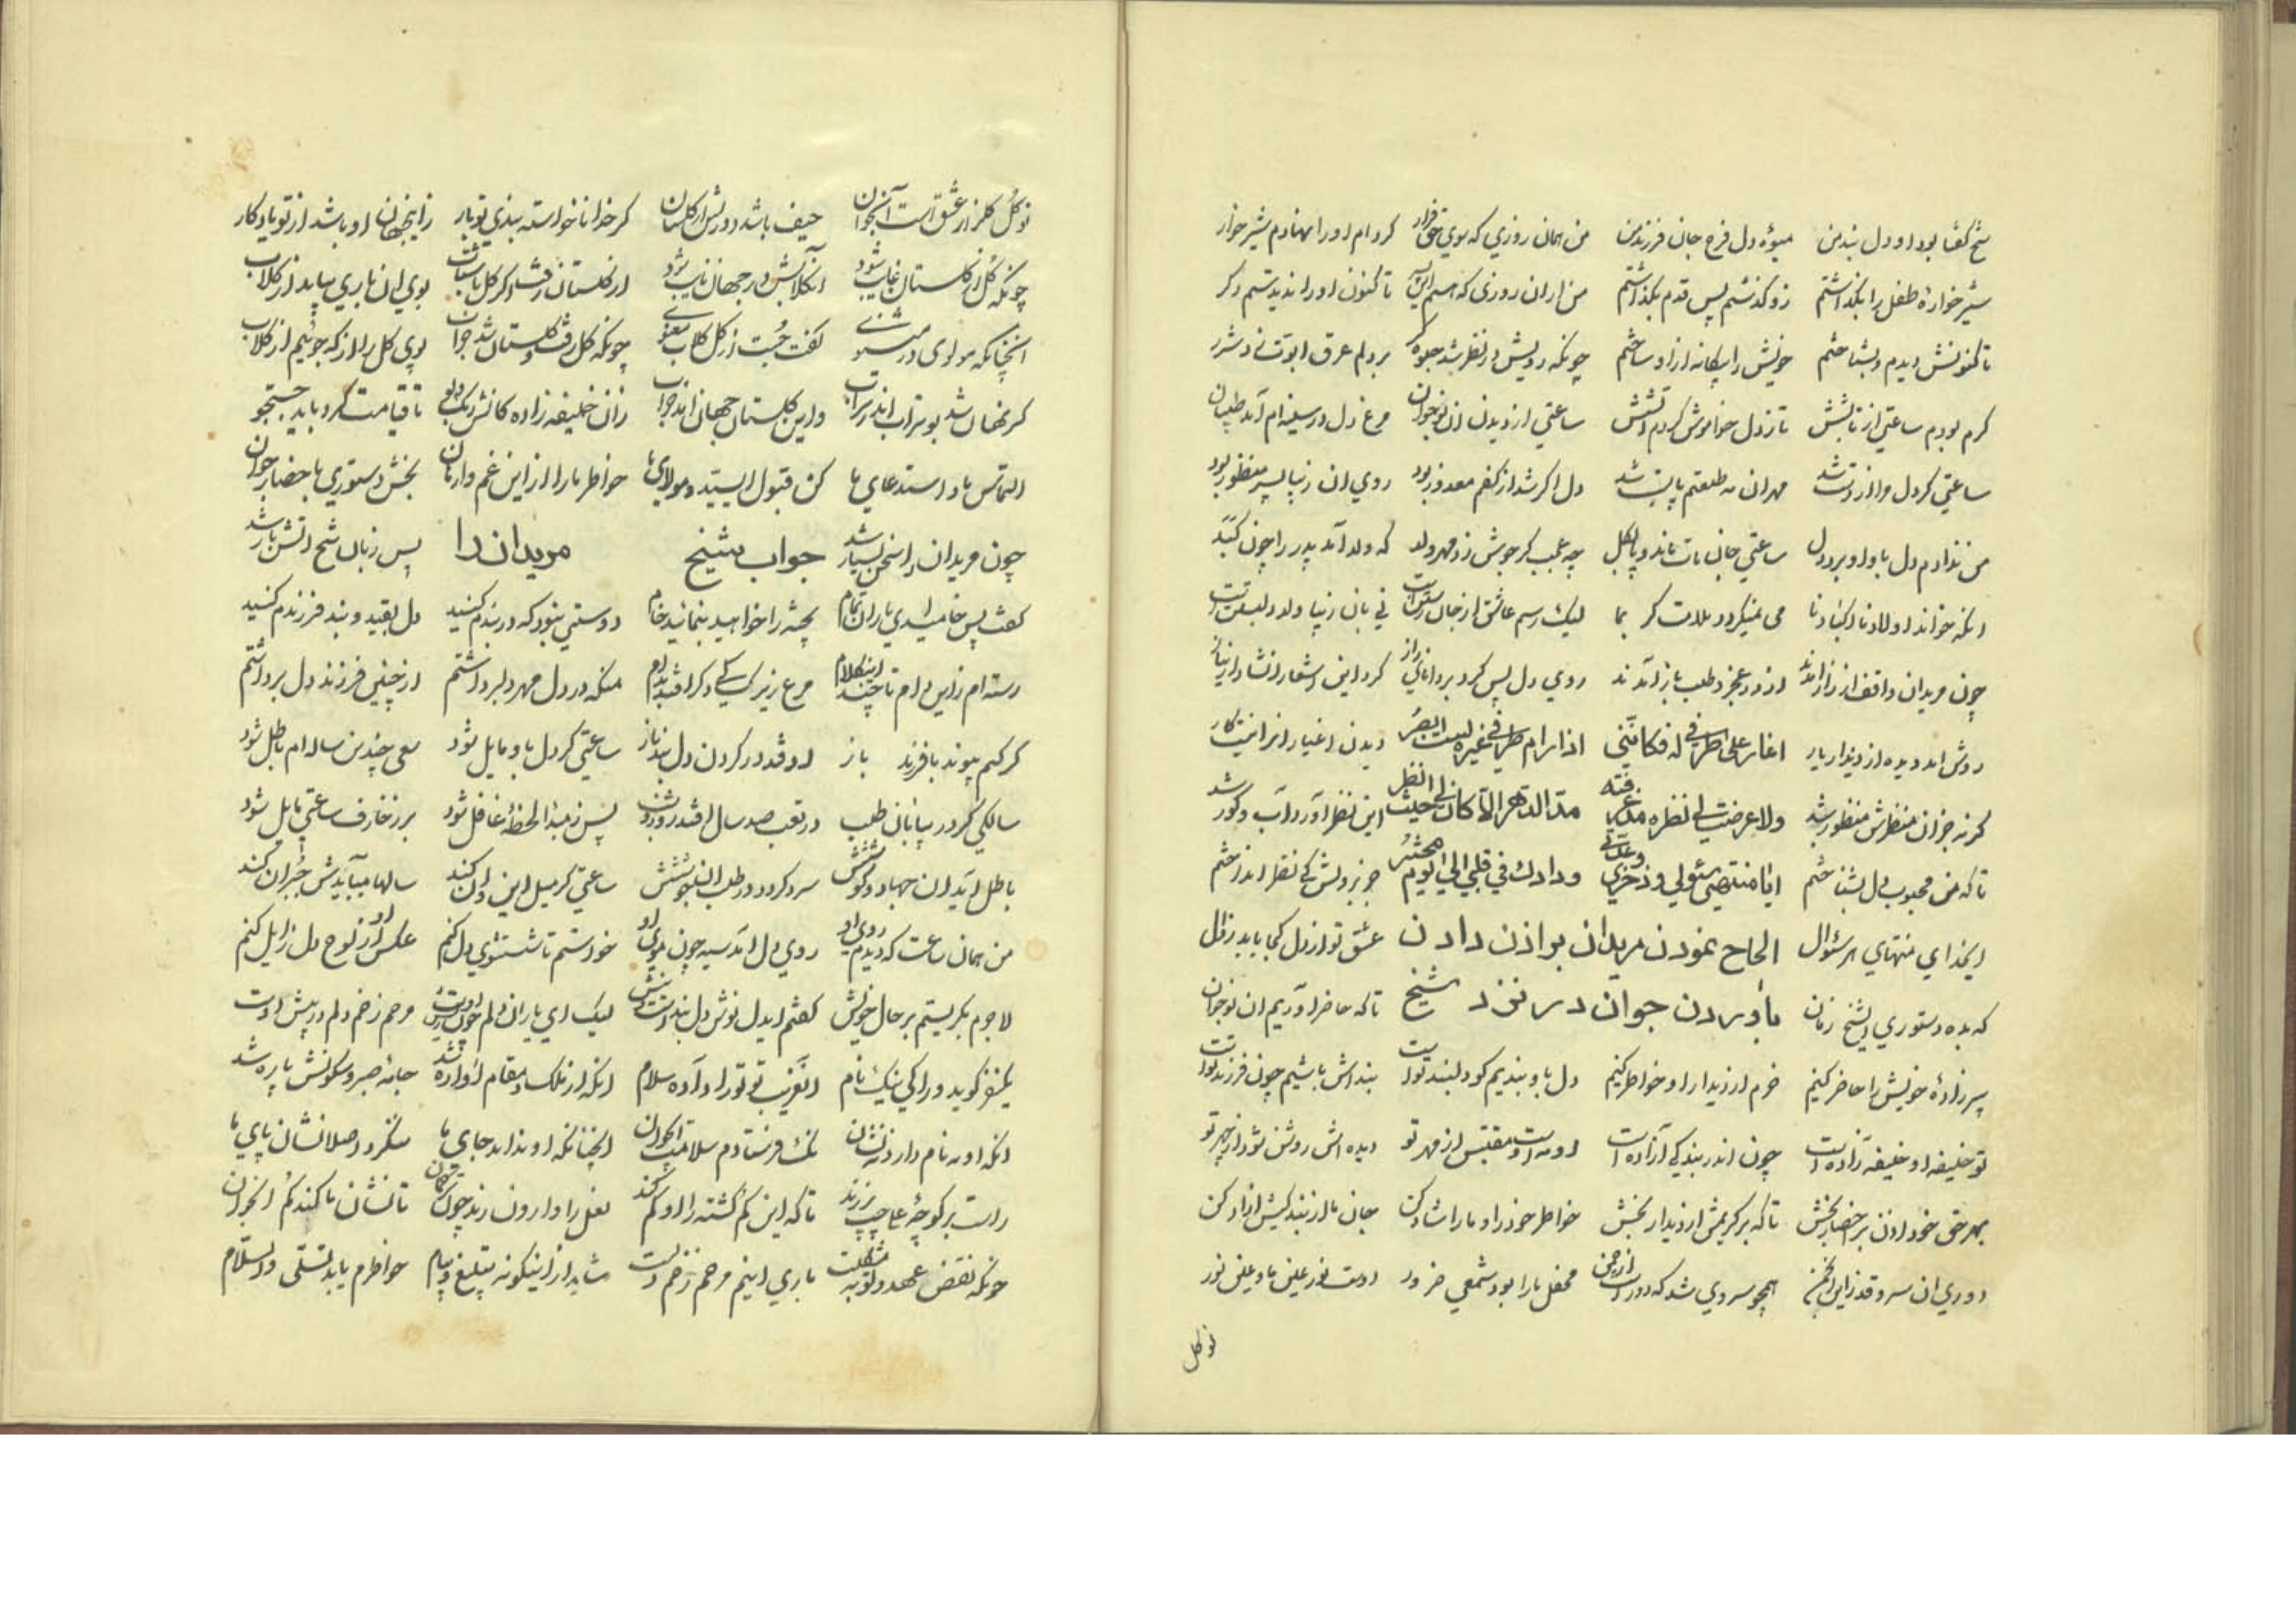 شیخ گفتا بود او دل بند من میوه دل فرخ جان فرزند من من همان روزی که سوی حق فرار کردم او را نهادم شیر خوار
شیر خواره طفل را بگذاشتم زو گذشتم پس قدم بگذاشتم من از ان روزی که تا کنون او را ندیدستم دکر
تا کنونش دیدم و بشناختم خویش را بیگانه از او ساختم چونکه رویش در نظر شد جلوه گر بردلم عرق ابوت زد شرر
کرم بودم ساعتی از تابشش تا ز دل خواموش کردم آتشش ساعتی از دیدن ان نوجوان مرغ دل در سینه ام آمد طپان
ساعتی کر دل مرا از دست شد مهر ان مه طلعتم پا بست شد دل اکر شد از کفم معذور بود روی ان زیبا پسر منظور بود
من ندادم دل باو او برد دل ساعتی جان مات ماند و پا بکل چه عجب کر جوشش زد مهر ولد که ولد آمد پدر را چون کبد
انکه خواند اولادنا اکبادنا می نمیکردد ملامت کر بما لیک رسم عاشق از جان رستن است نی بان زیبا ولد دل بستن است
چون مریدان واقف از راز آمدند از در عجز و طلب باز آمدند روی دل پس کرد بر دانای راز کرد این اشعار انشاد از نیاز
روشن امد دیده از دیدار یار اغار علی طرفی له فکاننی اذا رام طرفی غیره لیست ابصر دیدن اغیار از ما نیست کار
کر نه جز ان منظرش منظور شد ولا عرضت لی نظره مذ عرفته مدا الدهر الا کان لی حیث انظر این نظر آورد آب و کور شد
تا که من محبوب دل بشناختم ایا منتهی سئولی و ذخری وعدتی ودادك فی قلبی الی الیوم محشر جز برویش کی نظر اندختم
ایخدا ای منتهای هر سئوال الحاح نمودن مریدان بر اذن دادن عشق تو از دل کجا یابد زوال
که بده دستوری ای شیخ زمان بآوردن جوان در نزد شیخ تا که حاضر آوریم ان نوجوان
پیر زاده خویش را حاضر کنیم خرم از دیدار او خواطر کنیم دل باو بندیم کو دلبند تست بنده اش باشیم چون فرزند تست
تو خلیفه او خلیفه زاده است چون اندر بندکی آزاده است او مه است و مقتبس از مهر تو دیده اش روشن شود از چهر تو
بهر حق خود اذن بر احضار بخش تا که برکیریمش از دیدار بخش خواطر خود را و ما را شاد کن جان ما از بند کیش ازاد کن
دوری ان سرو قد زاین انجمن همچو سروی شد که دور است از چمن محفل ما را بود شمعی ضرور اوست نور عین ما و عین نور
نو کل
نو کل کلزار عشق است آنجوان حیف باشد دورش از کلستان کر خدا ناخواسته بندی تو بار زاینجهان او باشد از تو یادکار
چونکه کل از کلستان غایب شود آنکلابش در جهان نایب شود از کلستان رفت اکر کل با شتاب بوی ان باری بیاید از کلاب
انچنانکه مولوی در مثنوی کفت جست از کل کلاب معنوی چونکه کل رفت و کلستان شد خراب بوی کل را از که جوئیم از کلاب
کر نهان شد بوتراب اندر تراب و این کلستان جهان ماند خراب زان خلیفه زاده کانش رنک و بو تا قیامت کرد باید جستجو
التماس ما و استدعای ما کن قبول ای سید و مولای ما خواطر ما را از این غم وارهان بخش دستوری باحضار جوان
چون مریدان را سخن بسیار شد جواب شیخ مریدان را پس زبان شیخ آتش بار شد
کفت پس خامید ای یاران تمام پخته را خواهید بنمائید خام دوستی نبود که در بندم کنید دل بقید و بند فرزندم کنید
رسته ام زاین دام تا چند اینکلام مرغ زیرک کی دکر افتد بدام منکه در دل مهر دلبر داشتم از چنین فرزند دل برداشتم
کر کنم پیوند با فرزند باز اوفتد در کردن دل بند باز ساعتی کر دل باو مایل شود سعی چندین ساله ام باطل شود
سالکی کر در بیابان طلب در تعب صد سال افتد روز و شب پس زمبدأ لحظه غافل شود بر زخارف ساعتی مایل شود
باطل اید ان جهاد و کوشش سرد کردد در طلب ان جوششش ساعتی کر میل این و ان کند سالها میبایدش جبران کند
من همان ساعت که دیدم روی او روی دل امد سیه چون موی او خواستم تا شستشوی دل کنم عکس او از لوح دل زایل کنم
لاجرم بکریستم بر حال خویش کفتم ایدل نوش دل بنداست و نیش لیک ای یاران دلم چون ریش اوست مرحم زخم دلم در پیش اوست
یکنفر کوید ورا کی نیک نام انغریب تو تورا داده سلام انکه از ملک و مقام آواره شد جامه صبر و سکونش پاره شد
انکه او نه نام دارد نه نشان نک فرستادم سلامت ایجوان انچنانکه او نداند جای ما ننکرد اصلا نشان پای ما
راست بر کوچه علی چپ برزند تا که این کم کشته را او کم کند نعل را وارون زند چون ترکمان تا نشان ما کند کم انجوان
چونکه نقض عهد و توبه مشکلست باری اینم مرحم زخم دلست شاید از اینکونه تبلیغ و پیام خواطرم یابد تسلی والسلام